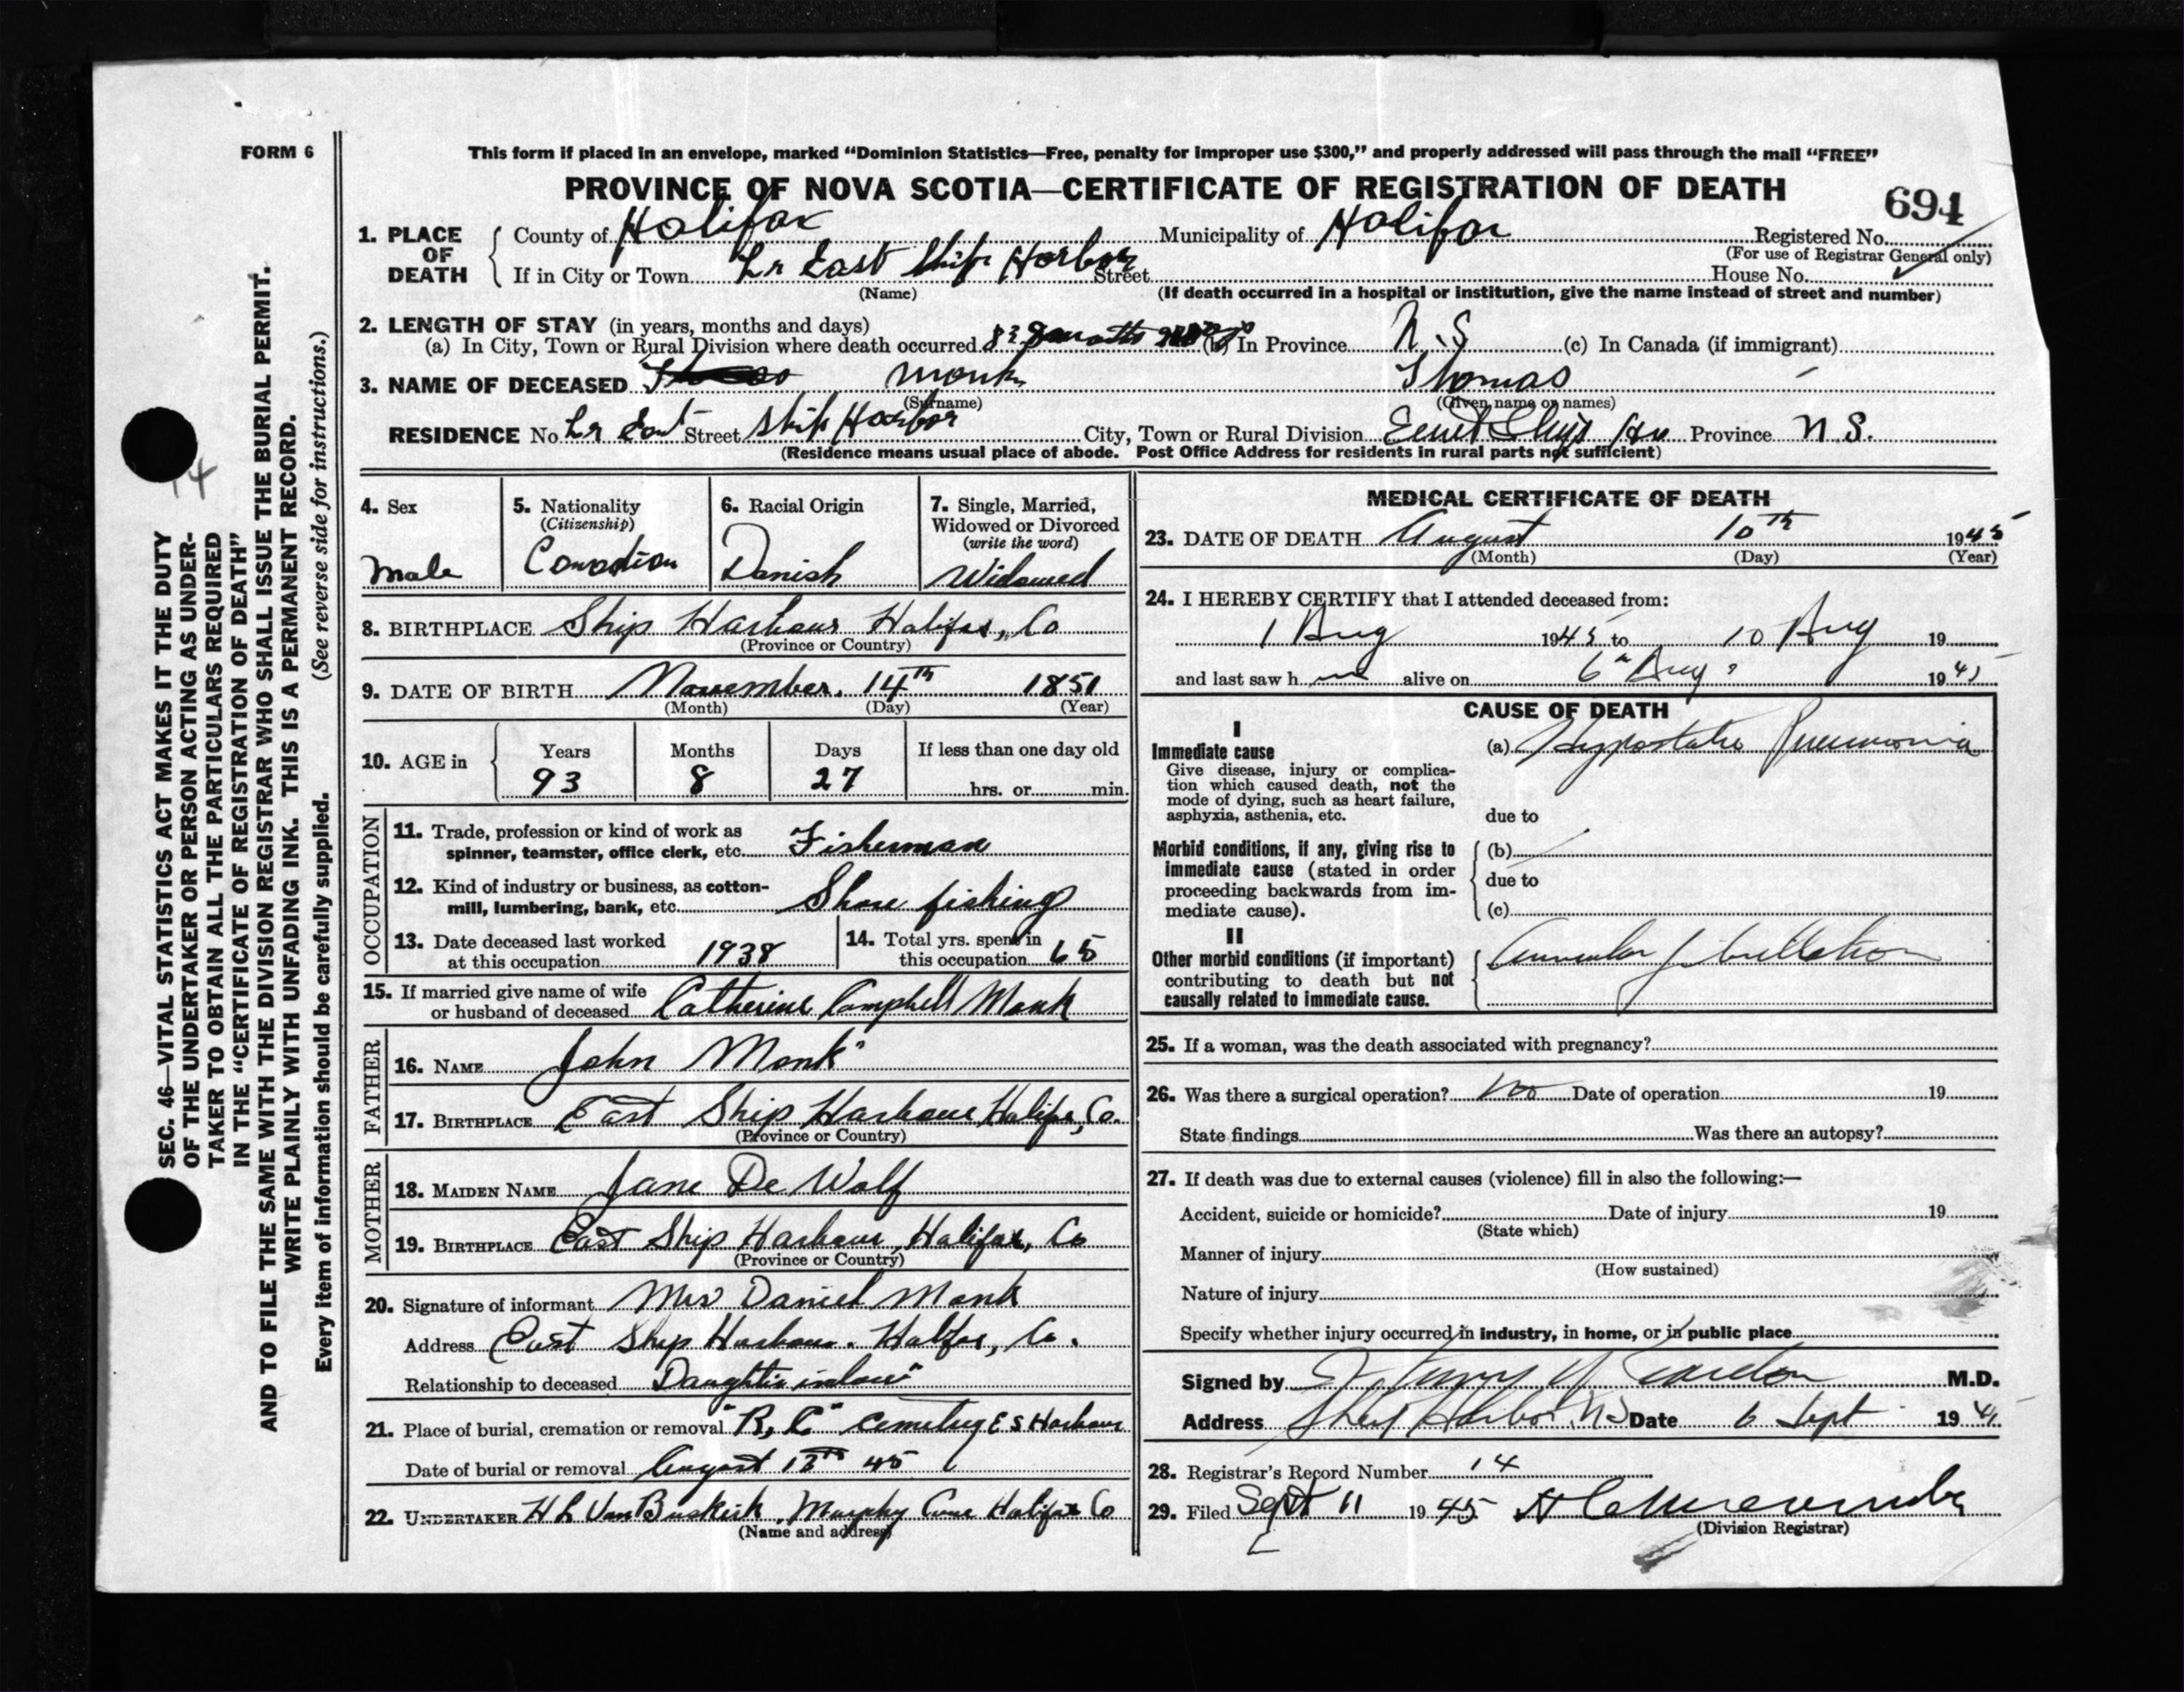 FORM 6
This form if placed in an envelope, marked "Dominion Statistics—Free, penalty for improper use $300," and properly addressed will pass through the mail "FREE"
PROVINCE OF NOVA SCOTIA—CERTIFICATE OF REGISTRATION OF DEATH
694
1. PLACE OF DEATH { County of Halifax Municipality of Halifax Registered No.
(For use of Registrar General only)
If in City or Town Lr East Ship Harbor Street House No.
(Name) (If death occurred in a hospital or institution, give the name instead of street and number)
2. LENGTH OF STAY (in years, months and days)
(a) In City, Town or Rural Division where death occurred (b) In Province N.S (c) In Canada (if immigrant)
3. NAME OF DECEASED Monk Thomas
(Surname) (Given name or names)
RESIDENCE No. Lr East Street Ship Harbor City, Town or Rural Division Province N S.
(Residence means usual place of abode. Post Office Address for residents in rural parts not sufficient)
4. Sex
Male
5. Nationality
(Citizenship)
Canadian
6. Racial Origin
Danish
7. Single, Married,
Widowed or Divorced
(write the word)
Widowed
8. BIRTHPLACE Ship Harbour Halifax, Co
(Province or Country)
9. DATE OF BIRTH November. 14th 1851
(Month) (Day) (Year)
10. AGE in { Years Months Days If less than one day old
93 8 27 hrs. or min.
OCCUPATION
11. Trade, profession or kind of work as
spinner, teamster, office clerk, etc. Fisherman
12. Kind of industry or business, as cotton-
mill, lumbering, bank, etc. Shore fishing
13. Date deceased last worked
at this occupation 1938
14. Total yrs. spent in
this occupation 65
15. If married give name of wife
or husband of deceased Catherine Campbell Monk
FATHER
16. NAME John Monk"
17. BIRTHPLACE East Ship Harbour Halifax, Co.
(Province or Country)
MOTHER
18. MAIDEN NAME Jane De Wolf
19. BIRTHPLACE East Ship Harbour, Halifax, Co
(Province or Country)
20. Signature of informant Mrs Daniel Monk
Address East Ship Harbour. Halifax, Co.
Relationship to deceased Daughter inlaw"
21. Place of burial, cremation or removal "R, C" Cemetery E S Harbour
Date of burial or removal August 13th 45
22. UNDERTAKER H L Van Buskirk, Murphy Cove Halifax Co
(Name and address)
MEDICAL CERTIFICATE OF DEATH
23. DATE OF DEATH August 10th 1945
(Month) (Day) (Year)
24. I HEREBY CERTIFY that I attended deceased from:
1 Aug 1945 to 10 Aug 19
and last saw h im alive on 6th Aug 1945
CAUSE OF DEATH
I
Immediate cause
Give disease, injury or complica-
tion which caused death, not the
mode of dying, such as heart failure,
asphyxia, asthenia, etc.
(a) Hypostatic Pneumonia
due to
Morbid conditions, if any, giving rise to
immediate cause (stated in order
proceeding backwards from im-
mediate cause).
(b)
due to
(c)
II
Other morbid conditions (if important)
contributing to death but not
causally related to immediate cause.
Auricular fibrillation
25. If a woman, was the death associated with pregnancy?
26. Was there a surgical operation? No Date of operation 19
State findings Was there an autopsy?
27. If death was due to external causes (violence) fill in also the following:—
Accident, suicide or homicide? Date of injury 19
(State which)
Manner of injury
(How sustained)
Nature of injury
Specify whether injury occurred in industry, in home, or in public place
Signed by M.D.
Address Sheet Harbor. N S Date 6 Sept 19
28. Registrar's Record Number 14
29. Filed Sept 11 1945
(Division Registrar)
14
SEC. 46—VITAL STATISTICS ACT MAKES IT THE DUTY
OF THE UNDERTAKER OR PERSON ACTING AS UNDER-
TAKER TO OBTAIN ALL THE PARTICULARS REQUIRED
IN THE "CERTIFICATE OF REGISTRATION OF DEATH"
AND TO FILE THE SAME WITH THE DIVISION REGISTRAR WHO SHALL ISSUE THE BURIAL PERMIT.
WRITE PLAINLY WITH UNFADING INK. THIS IS A PERMANENT RECORD.
Every item of information should be carefully supplied. (See reverse side for instructions.)